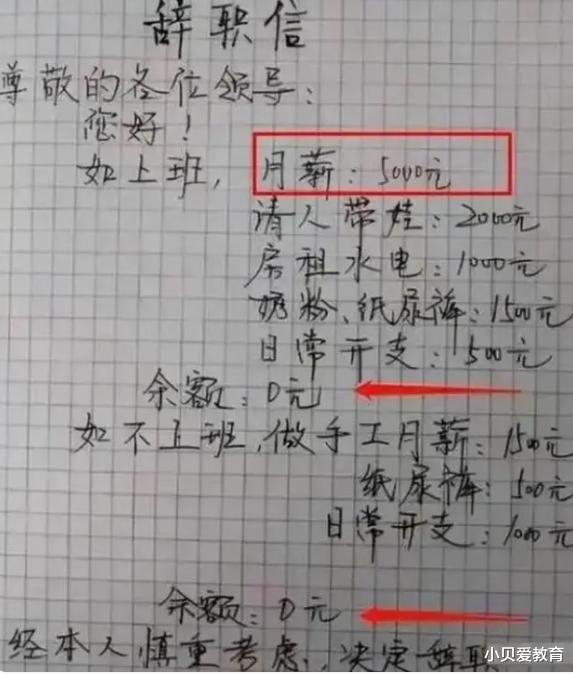 辞职信
尊敬的各位领导:
您好!
如上班, 月薪: 5000元
请人带娃: 2000元
房租水电: 1000元
奶粉、纸尿裤: 1500元
日常开支: 500元
余额: 0元
如不上班, 做手工月薪: 1500元
纸尿裤: 500元
日常开支: 1000元
余额: 0元
经本人慎重考虑, 决定辞职
小贝爱教育